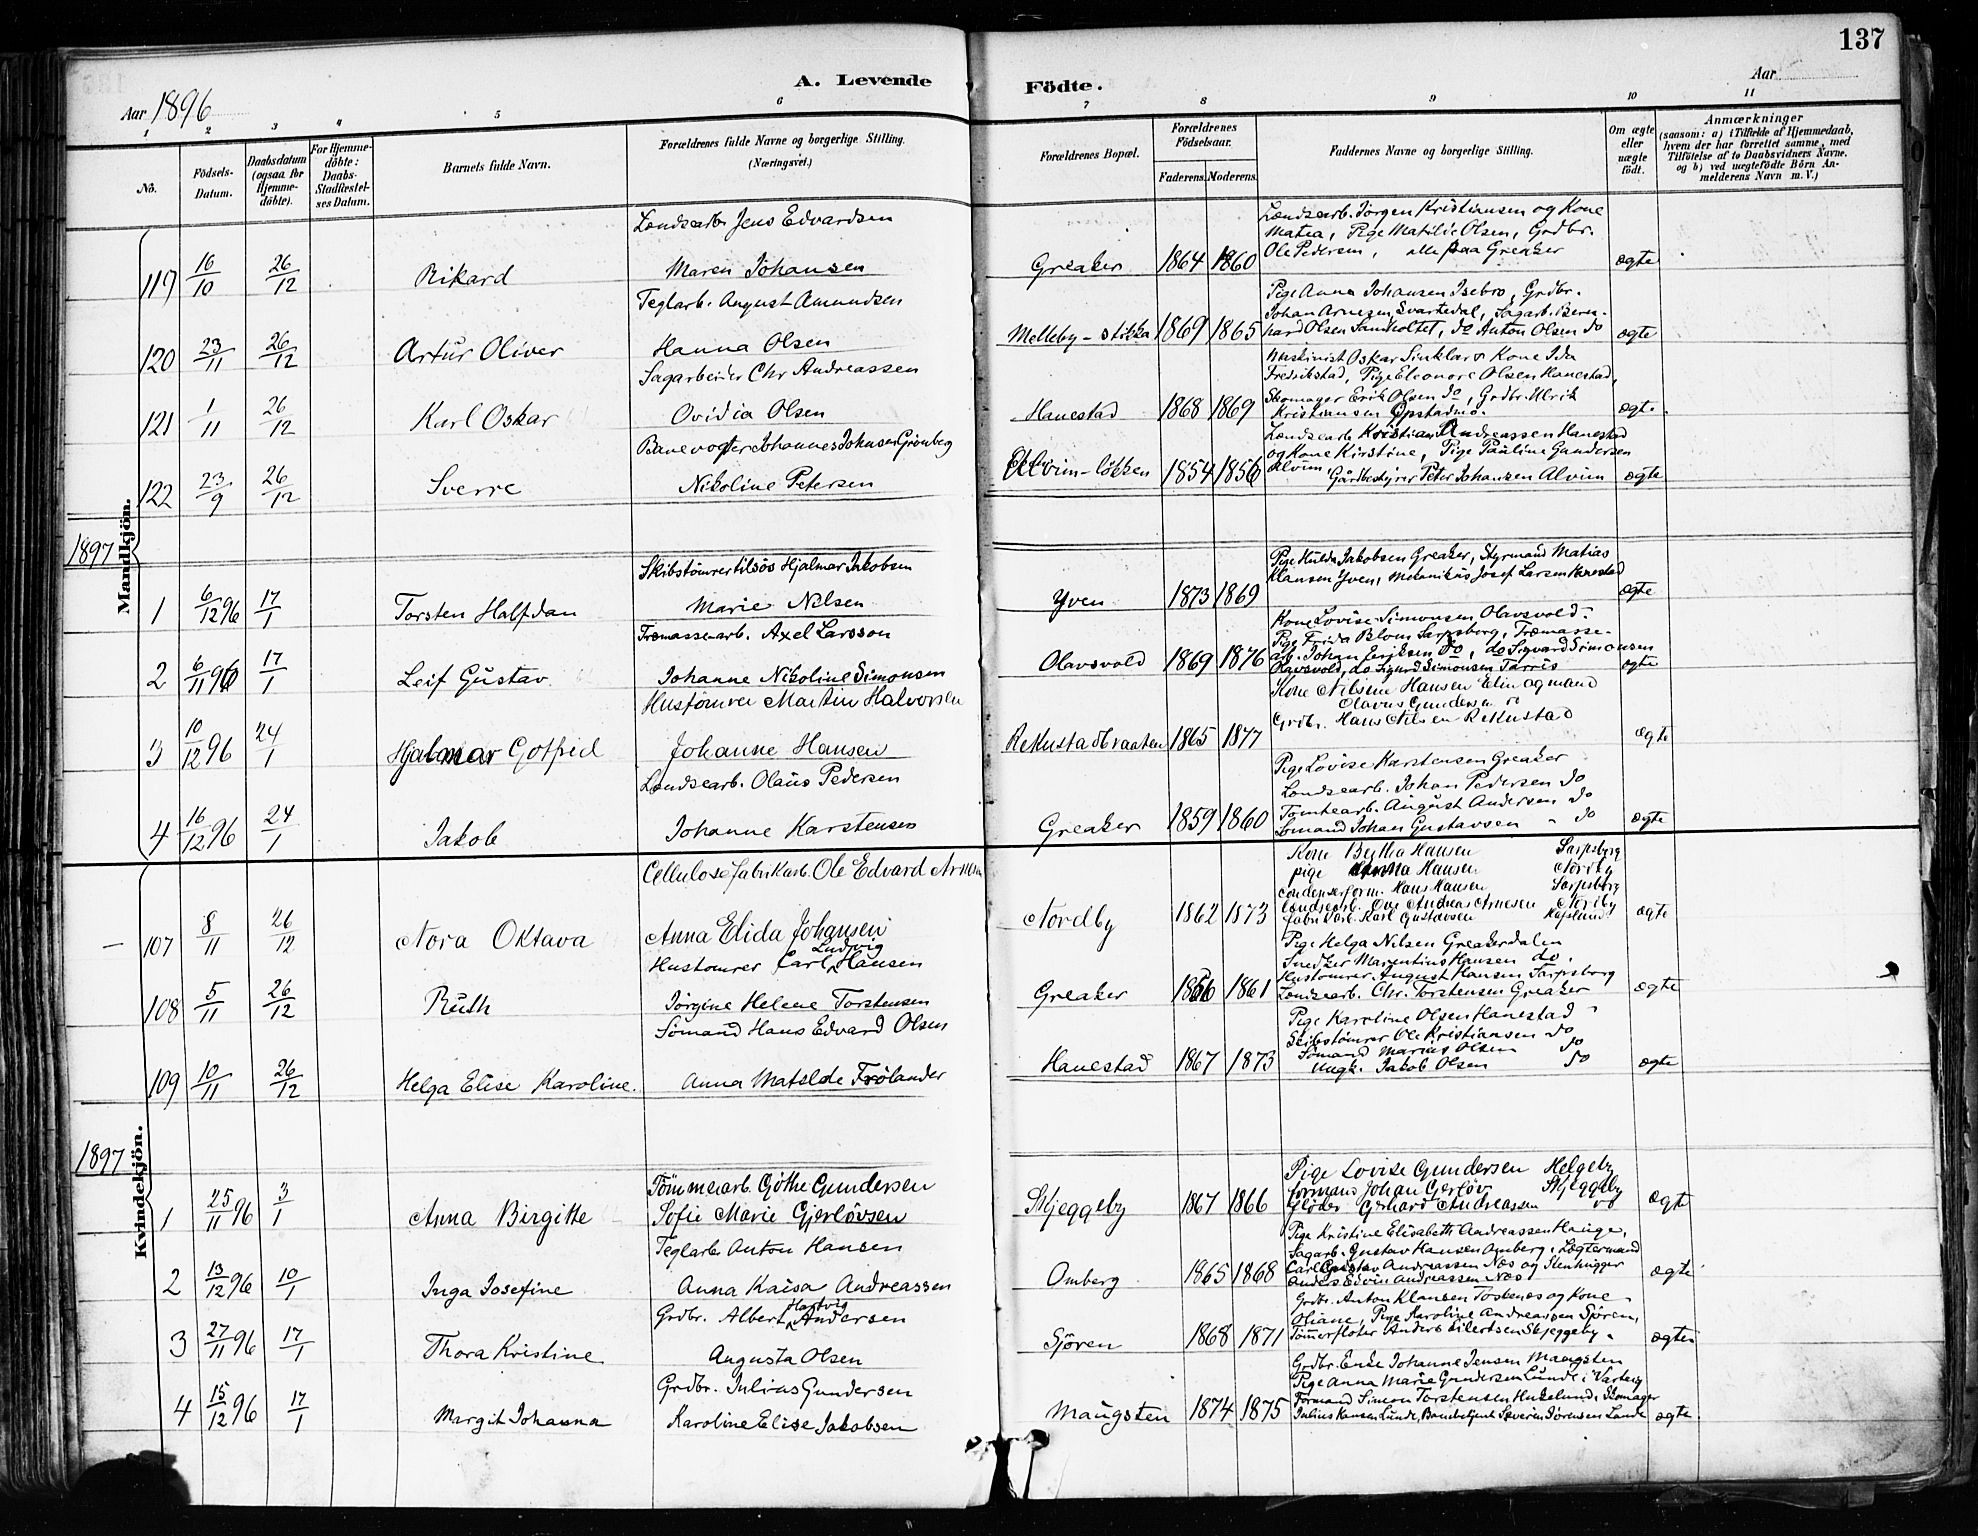 137
A. Levende Födte.
Aar 1896
Aar
1 2 3 4 5 6 7 8 9 10 11
No.
Födsels-Datum.
Daabsdatum (ogsaa for Hjemme-döbte).
For Hjemme-döbte: Daabs-Stadfæstel-ses Datum.
Barnets fulde Navn.
Forældrenes fulde Navne og borgerlige Stilling. (Næringsvei.)
Forældrenes Bopæl.
Forældrenes Födselsaar.
Faderens. Moderens.
Faddernes Navne og borgerlige Stilling.
Om ægte eller uægte födt.
Anmærkninger (saasom: a) i Tilfælde af Hjemmedaab, hvem der har forrettet samme, med Tilföielse af to Daabsvidners Navne. og b) ved uægtefödte Börn An-melderens Navn m. V.)
Mandkjön.
Landsearb. Jens Edvardsen
119 16/10 26/12 Rikard Maren Johansen Greaker 1864 1860 ægte
Lændsearb. Jörgen Kristiansen og Kone
Matea, Pige Matilde Olsen, Grdbr.
Ole Pedersen, alle paa Greaker
Teglarb. August Amundsen
120 23/11 26/12 Artur Oliver Hanna Olsen Melleby-stikka 1869 1865 ægte
Pige Anna Johansen Isebro, Grdbr.
Johan Arnesen Svartedal, Sagarb. Bern-
hard Olsen Sandholtet, do Anton Olsen do
Sagarbeider Chr Andreassen
121 1/11 26/12 Karl Oskar Ovidia Olsen Hanestad 1868 1869 ægte
Maskinist Oskar Sinklar & Kone Ida
Fredrikstad, Pige Eleonore Olsen Hanestad,
Skomager Erik Olsen do, Grdbr. Ulrik
Kristiansen Opstadmo.
Banevogter Johannes Johnsen Grönberg
122 23/9 26/12 Sverre Nikoline Petersen Alvim-lökken 1854 1856 ægte
Lændsearb. Kristian Andreassen Hanestad
og Kone Kirstine, Pige Pauline Gundersen
Alvim, Gårdbestyrer Peter Johansen Alvim
1897
Skibstömrertilsös Hjalmar Jakobsen
1 6/12 96 17/1 Torsten Halfdan Marie Nilsen Yven 1873 1869 ægte
Pige Hulda Jakobsen Greaker, Styrmand Matias
Klausen Yven, Mekanikus Josef Larsen Hanestad
Træmassearb. Axel Larsson
2 6/11 96 17/1 Leif Gustav Johanne Nikoline Simonsen Olavsvold 1869 1876 ægte
Kone Lovise Simonsen Olavsvold.
Pige Frida Blom Sarpsborg, Træmasse-
arb. Johan Eriksen do, do Sigvard Simonsen
Olavsvold, do Sigurd Simonsen Tarris
Hustömrer Martin Halvorsen
3 10/12 96 24/1 Hjalmar Gotfred Johanne Hansen Rekustadbraaten 1865 1877 ægte
Kone Nilsine Hansen Elin og mand
Olavus Gundersen do
Grdbr. Hans Nilsen Rekustad
Landsearb. Olaus Pedersen
4 16/12 96 24/1 Jakob Johanne Karstensen Greaker 1859 1860 ægte
Pige Lovise Karstensen Greaker
Landsearb. Johan Pedersen do
Tomtearb. August Andersen do
Sömand Johan Gustavsen do
Kvindekjön.
Cellulosefabrikarb. Ole Edvard Arnesen
107 8/11 26/12 Nora Oktava Anna Elida Johansen Nordby 1862 1873 ægte
Kone Bertha Hansen Sarpsborg
pige Hansen Nordby
Hans Hansen Sarpsborg
Landsearb. Ove Andreas Arnesen Nordby
Karl Gustavsen
Hustömrer Carl Ludvig Hansen
108 5/11 26/12 Ruth Jörgine Helene Torstensen Greaker 1856 1861 ægte
Pige Helga Nilsen Greakerdalen
Snedker Marentius Hansen do.
Hustömrer August Hansen Sarpsborg
Landsearb. Chr. Torstensen Greaker
Sömand Hans Edvard Olsen
109 10/11 26/12 Helga Elise Karoline. Anna Matilde Frölander Hanestad 1867 1873 ægte
Pige Karoline Olsen Hanestad
Skibstömrer Ole Kristiansen do
Sömand Marius Olsen do
Ungk. Jakob Olsen do
1897
Tömmerarb. Göthe Gundersen
1 25/11 96 3/1 Anna Birgitte Sofie Marie Gjerlövsen Skjeggeby 1867 1866 ægte
Pige Lovise Gundersen Helgeby
formand Johan Gerlöv Skjeggeby
flöder Gerhard Andreassen do
Teglarb Anton Hansen
2 13/12 96 10/1 Inga Josefine Anna Kaisa Andreassen Omberg 1865 1868 ægte
Pige Kristine Elisabeth Andreassen Hauge,
Sagarb. Gustav Hansen Omberg, Lægtermand
Carl Gustav Andreassen Næs og Stenhugger
Anders Edvin Andreassen Næs
Grdbr. Albert Hartvig Andersen
3 27/11 96 17/1 Thora Kristine Augusta Olsen Sjören 1868 1871 ægte
Grdbr. Anton Klausen Tostenæs og Kone
Oliane, Pige Karoline Andreassen Sjören,
Tömmerfloter Anders Eilertsen Skjeggeby.
Grdbr. Julius Gundersen
4 15/12 96 17/1 Margit Johanna Karoline Elise Jakobsen Maugsten 1874 1875 ægte
Grdbr. Enke Johanne Jensen Maugsten
Pige Anna Marie Gundersen Lunde i Varteig
Formand Simon Torstensen Huselund, Skomager
Julius Hansen Lunde, Severin Sörensen Lande